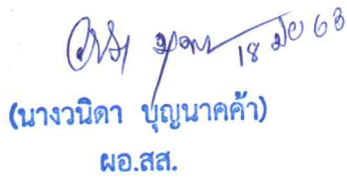 18 มิย 63
(นางวนิดา บุญนาคค้า)
ผอ.สส.